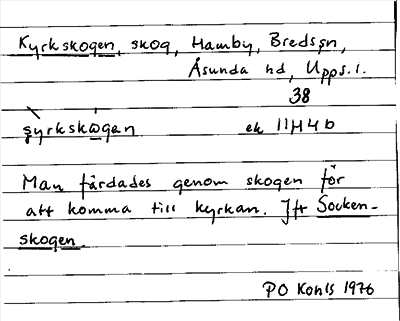 Kyrkskogen, skog, Hamby, Bredsjn,
Åsunda hd, Upps. l.
38
şyrkskωgan ek 11H4b
Man färdades genom skogen för
att komma till kyrkan. Jfr Socken-
skogen.
PO Kohls 1976